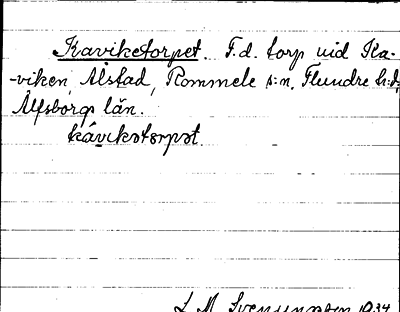 Kaviketorpet. F.d. torp vid Ka-
-viken, Alstad, Rommele s:n, Flundre h:d,
Älfsborgs län.
kávıkətɔrpət.
L. M. Svenungsson 1934